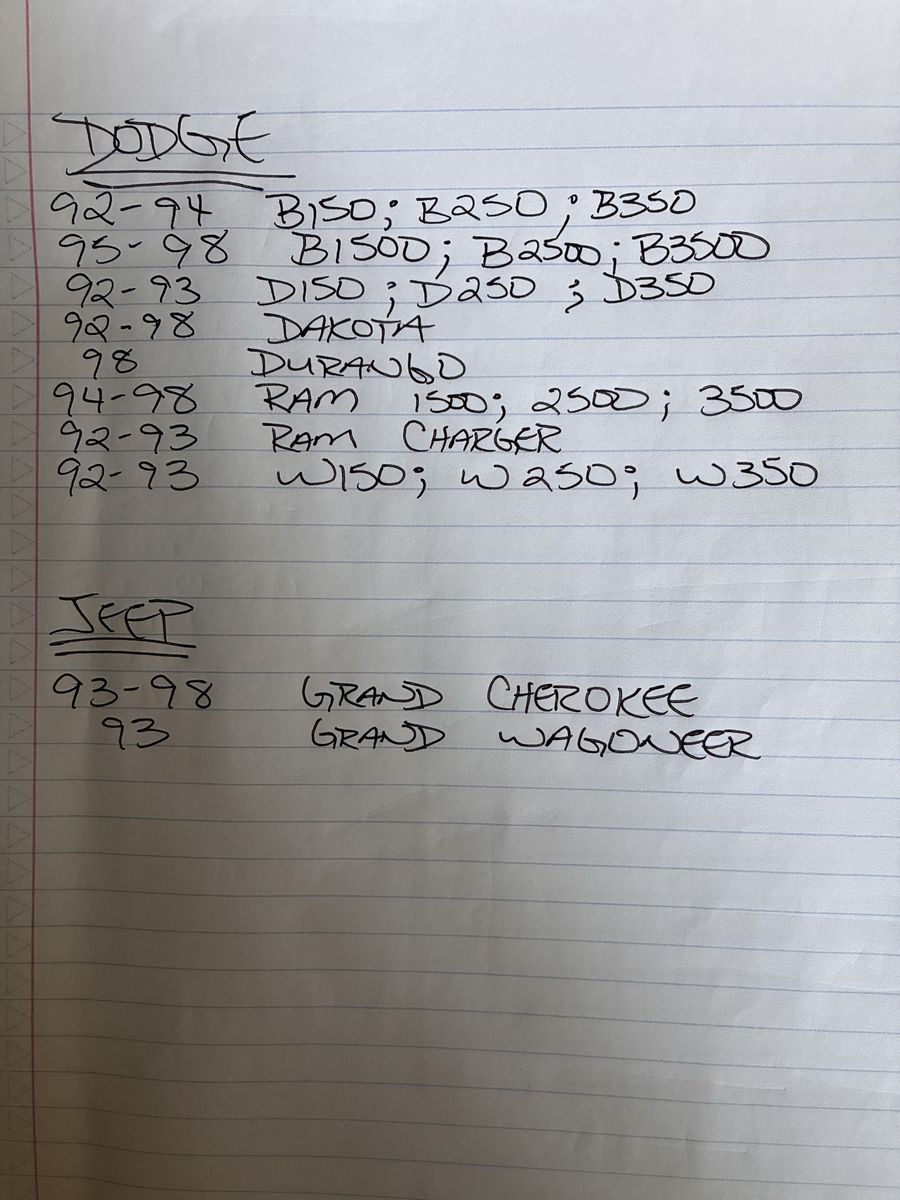 DODGE
92-94 B150; B250; B350
95-98 B1500; B2500; B3500
92-93 D150; D250; D350
92-98 DAKOTA
98 DURANGO
94-98 RAM 1500; 2500; 3500
92-93 RAM CHARGER
92-93 W150; W250; W350
JEEP
93-98 GRAND CHEROKEE
93 GRAND WAGONEER